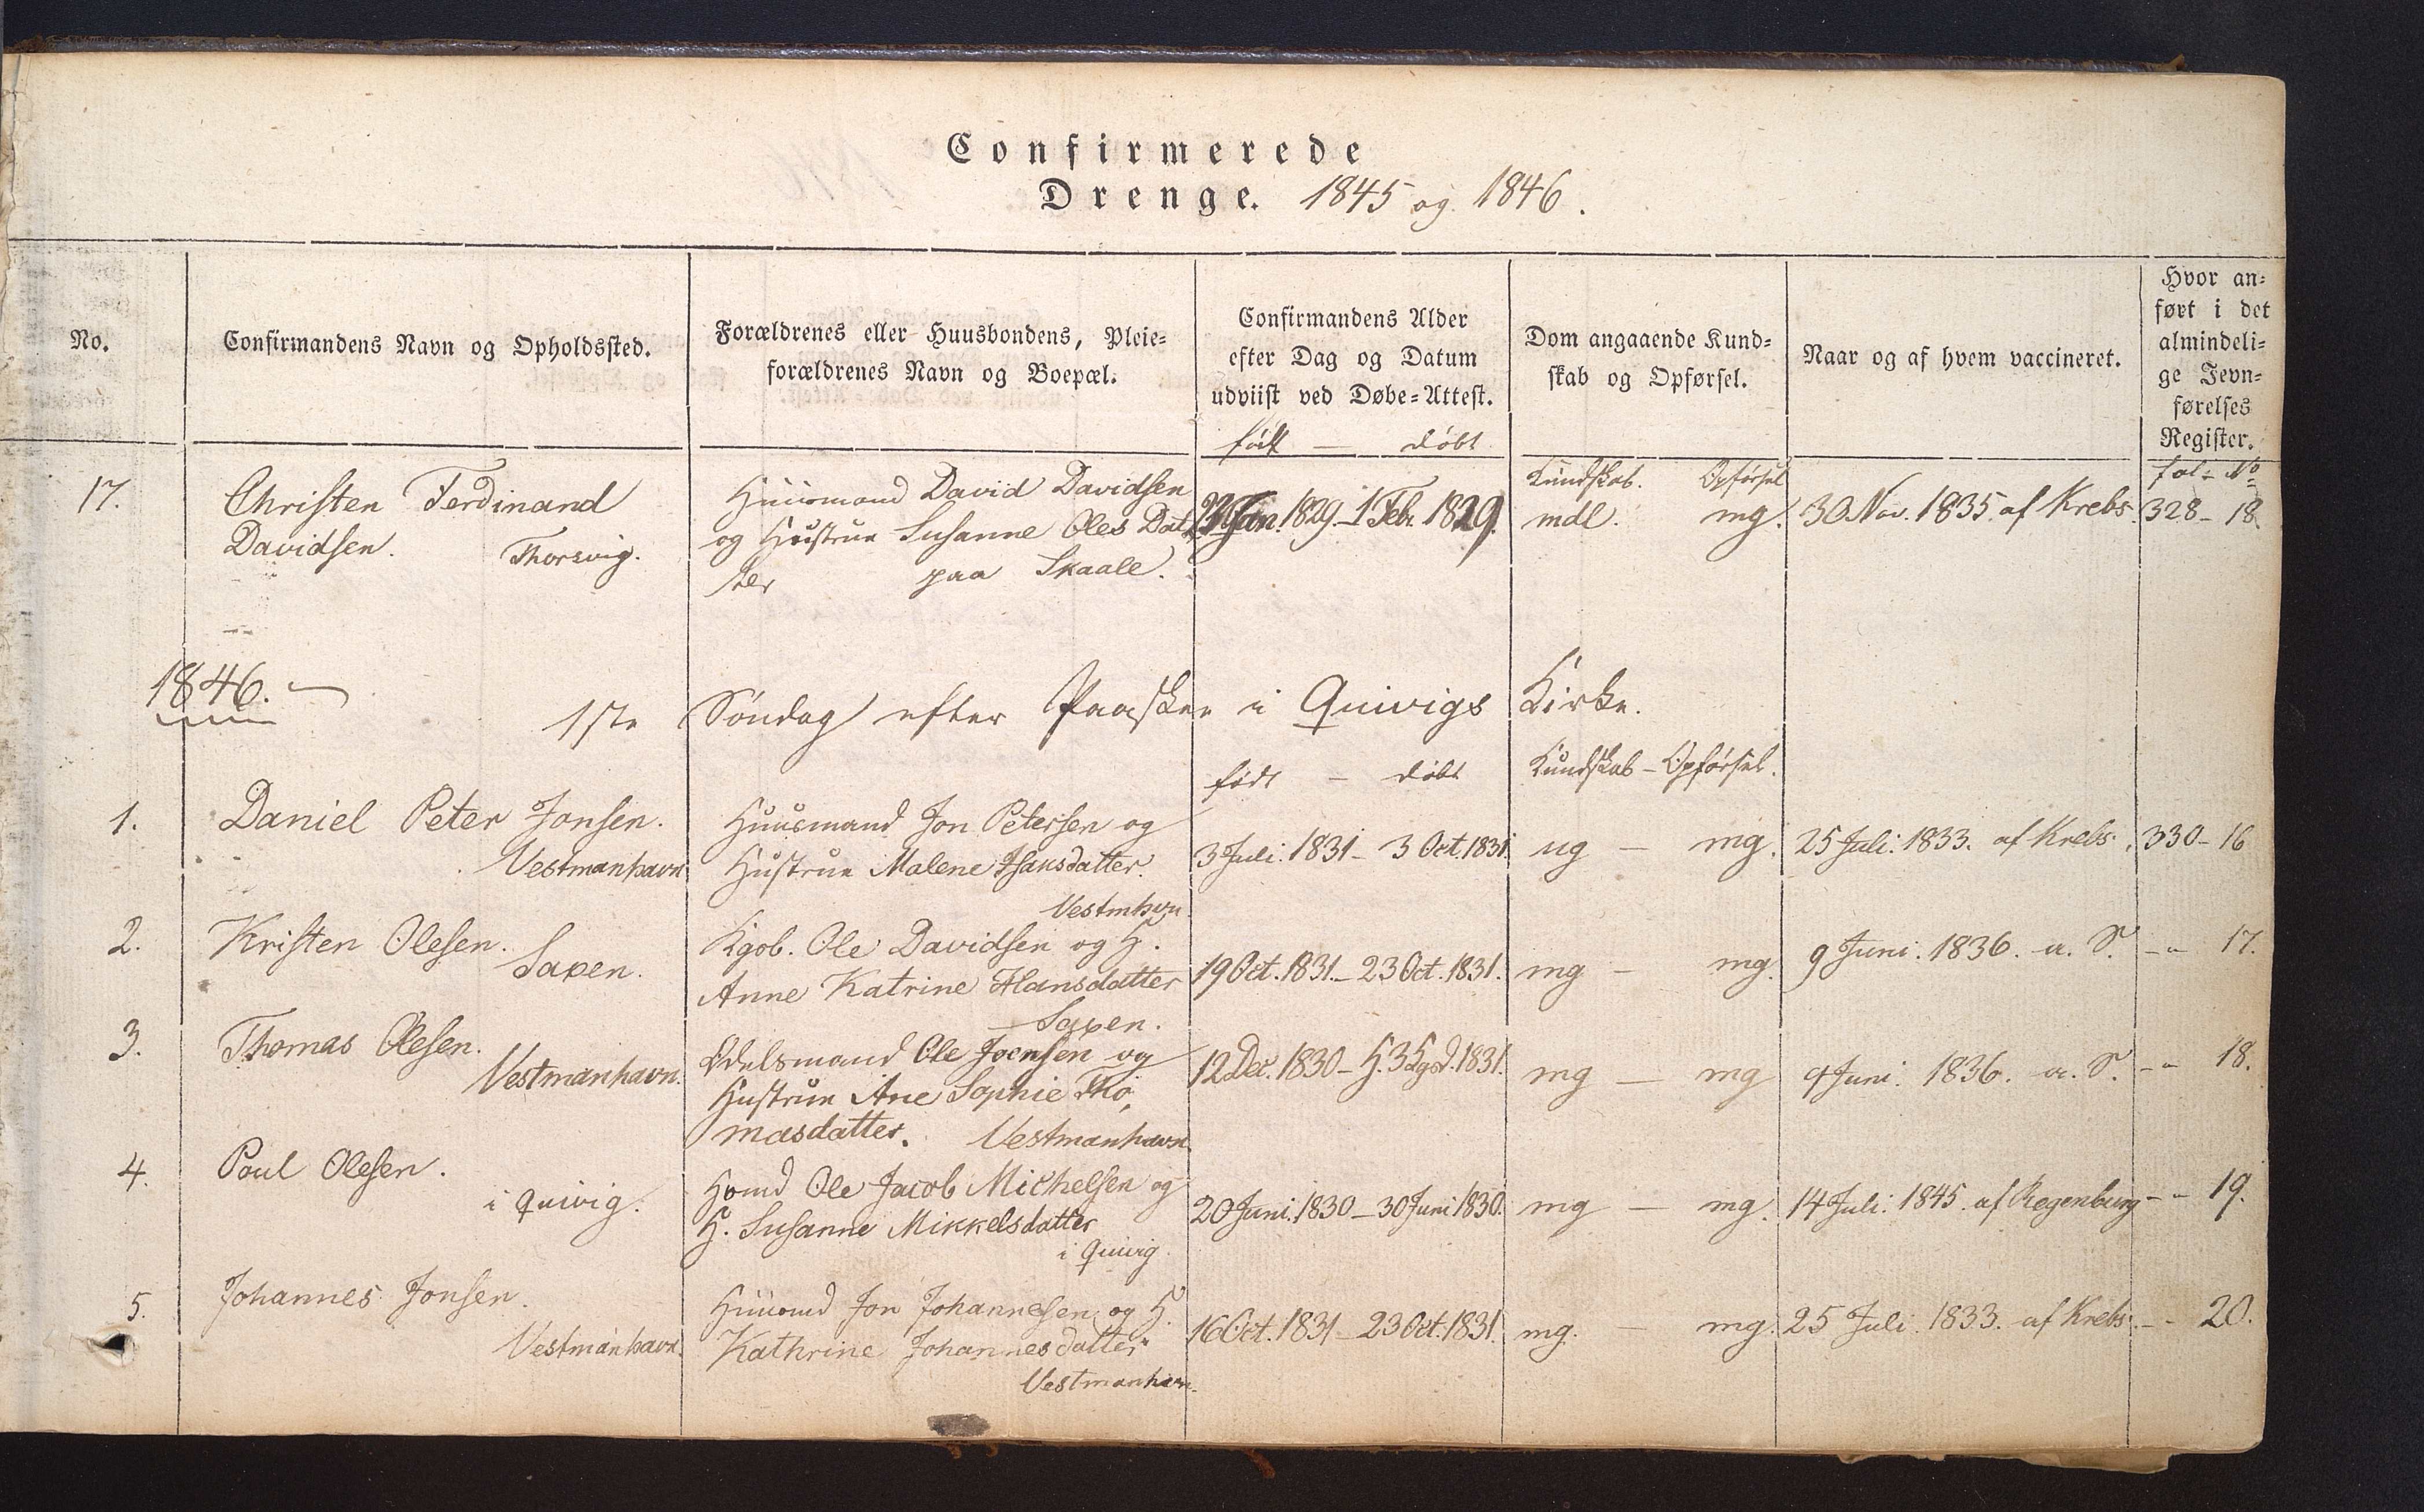 Confirmerede
Drenge. 1845 og 1846.
No.
Confirmandens Navn og Opholdssted.
Forældrenes eller Huusbondens, Pleie=
forældrenes Navn og Boepæl.
Confirmandens Alder
efter Dag og Datum
udviist ved Døbe=Attest.
født — døbt
Dom angaaende Kund=
skab og Opførsel.
Naar og af hvem vaccineret.
Hvor an=
ført i det
almindeli=
ge Jevn=
førelses
Register.
17.
Christen Ferdinand
Davidsen. Thorsvig.
Huusmand David Davidsen
og Hustrue Susanne Oles Dat
ter paa Skaale.
Jan. 1829. – 1 Febr. 1829.
Kundskab. Opførsel
mdl. mg.
30 Nov. 1835. af Krebs.
fol – No
328 – 18.
1846. —
1ste Søndag efter Paasken i Quivigs Kirke.
født – døbt
Kundskab – Opførsel.
1.
Daniel Peter Jonsen.
Vestmanhavn
Huusmand Jon Petersen og
Hustrue Malene Isaksdatter.
Vestmhvn.
3 Juli. 1831 – 3 Oct. 1831.
ug — mg.
25 Juli. 1833. af Krebs.
330 – 16
2.
Kristen Olesen.
Saxen.
Kgob. Ole Davidsen og H.
Anne Katrine Hansdatter
Saxen.
19 Oct. 1831. – 23 Oct. 1831.
mg — mg.
9 Juni. 1836. a. S.
– " 17.
3.
Thomas Olesen.
Vestmanhavn.
Odelsmand Ole Joensen og
Hustrue Ane Sophie Tho,
masdatter. Vestmanhavn
12 Dec. 1830 – H. 3 Kgs D. 1831.
mg — mg
9 Juni. 1836. a. S.
– " 18.
4.
Poul Olesen.
i Quivig.
Hsmd Ole Jacob Michelsen og
H. Susanne Mikkelsdatter
i Quivig.
20 Juni. 1830 – 30 Juni 1830.
mg — mg.
14 Juli. 1845. af Regenburg
– " 19.
5.
Johannes Jonsen.
Vestmanhavn.
Huusmd Jon Johannesen og H.
Kathrine Johannesdatter
Vestmanhavn.
16 Oct. 1831 – 23 Oct. 1831.
mg. — mg.
25 Juli. 1833. af Krebs.
– – 20.